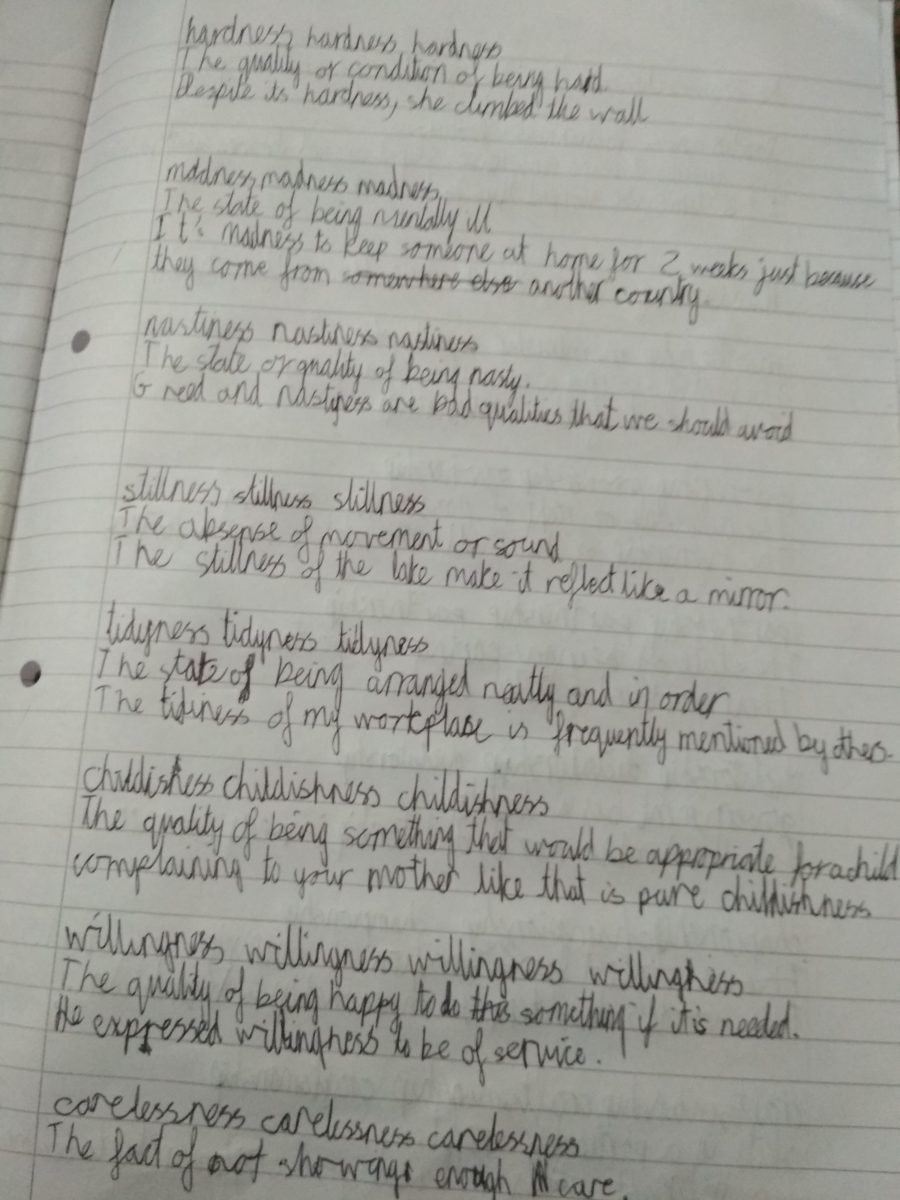 hardness, hardness, hardness
The quality or condition of being hard.
Despite its hardness, she climbed the wall
madness, madness madness,
The state of being mentally ill
It's madness to keep someone at home for 2 weeks just because
they come from somewhere else another country.
nastiness nastiness nastiness
The state or quality of being nasty.
Greed and nastyness are bad qualities that we should avoid
stillness stillness stillness
The absense of movement or sound
The stillness of the lake make it reflect like a mirror.
tidyness tidyness tidyness
The state of being arranged neatly and in order
The tidiness of my workplase is frequently mentioned by others.
childishess childishness childishness
The quality of being something that would be appropriate for a child
complaining to your mother like that is pure childishness
willingness willingness willingness willingness
The quality of being happy to do this something if it is needed.
He expressed willingness to be of service.
carelessness carelessness carelessness
The fact of not showing enough care.